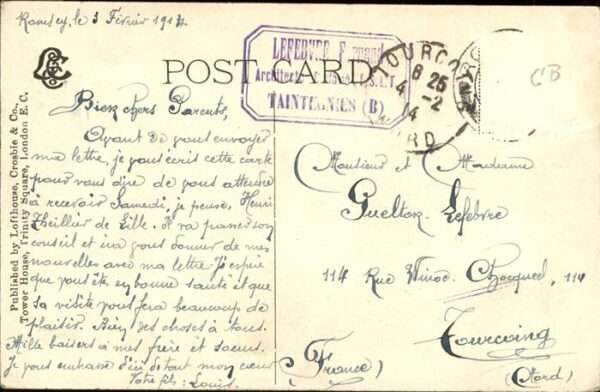 Ramsey, le 3 Février 1914.
POST CARD
LEFEBVRE F
Architecte
TAINTEGNIES (B)
TOURCOING
8 25
4 -2
14
NORD
CB
Published by Lofthouse, Crosbie & Co.,
Tower House, Trinity Square, London E. C.
Bien chers Parents,
Avant de vous envoyer
ma lettre, je vous écris cette carte
pour vous dire de vous attendre
à recevoir Samedi, je pense, Henri
Theillier de Lille. Il va passer son
conseil et ira vous donner de mes
nouvelles avec ma lettre. J'espère
que vous êtes en bonne santé et que
sa visite vous fera beaucoup de
plaisir. Bien des choses à tous.
Mille baisers à mes frère et soeurs.
Je vous embrasse d'ici de tout mon coeur
Votre fils: Louis.
Monsieur et Madame
Guelton Lefebvre
114 Rue Winoc Chocqueel, 114
Tourcoing
(France) (Nord)